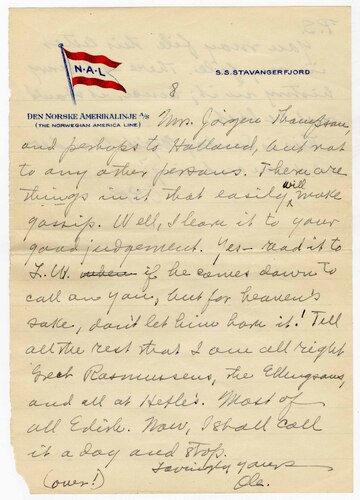 N·A·L
S.S. STAVANGERFJORD
8
DEN NORSKE AMERIKALINJE A/S
(THE NORWEGIAN AMERICA LINE)
Mrs. Jörgen Thompson,
and perhaps to Holland, but not
to any other persons. There are
things in it that easily will make
gossip. Well, I leave it to your
good judgement. Yes - read it to
L.W. when if he comes down to
call on you, but for heaven's
sake, don't let him have it! Tell
all the rest that I am all right
Greet Rasmussens, the Ellingsons,
and all at Hefle's. Most of
all Edith. Now, I shall call
it a day and stop.
Lovingly yours
Ole.
(over!)